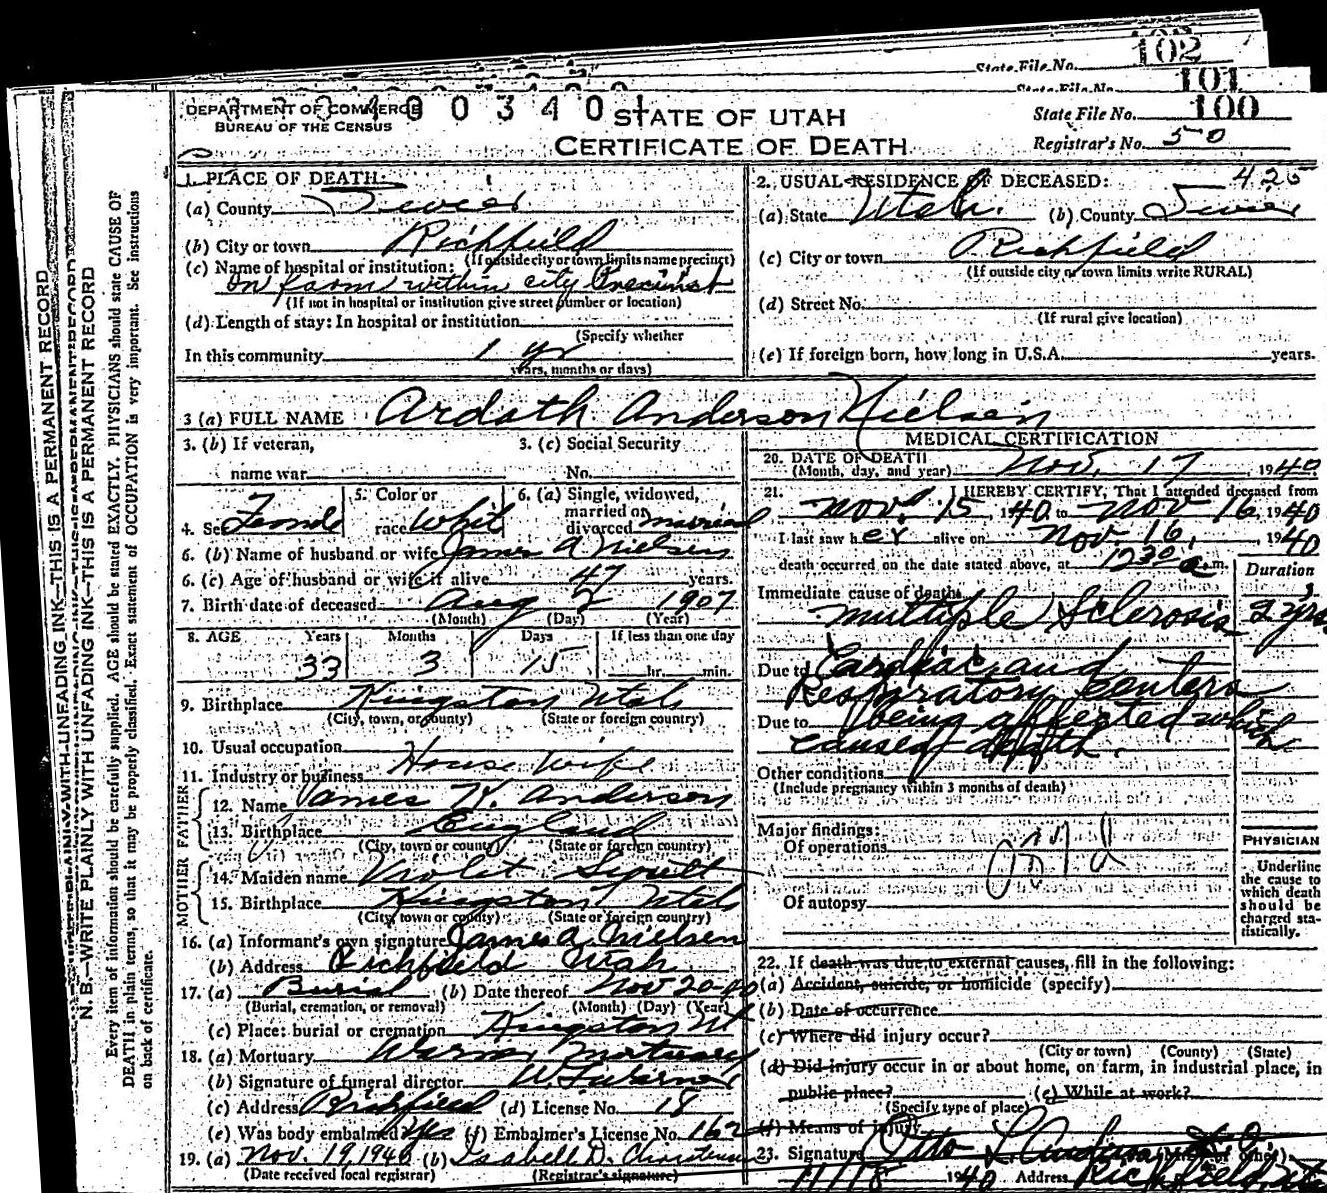 State File No. 102
State File No. 101
State File No. 100
Registrar's No. 50
DEPARTMENT OF COMMERCE
BUREAU OF THE CENSUS
0 0 3 4 0
STATE OF UTAH
CERTIFICATE OF DEATH
N. B.—WRITE PLAINLY WITH UNFADING INK—THIS IS A PERMANENT RECORD
Every item of information should be carefully supplied. AGE should be stated EXACTLY. PHYSICIANS should state CAUSE OF
DEATH in plain terms, so that it may be properly classified. Exact statement of OCCUPATION is very important. See instructions
on back of certificate.
1. PLACE OF DEATH:
(a) County Sevier
(b) City or town Richfield
(If outside city or town limits name precinct)
(c) Name of hospital or institution:
On farm within city Precinct
(If not in hospital or institution give street number or location)
(d) Length of stay: In hospital or institution
(Specify whether
In this community 1 yr
years, months or days)
2. USUAL RESIDENCE OF DECEASED: 425
(a) State Utah. (b) County Sevier
(c) City or town Richfield
(If outside city or town limits write RURAL)
(d) Street No.
(If rural give location)
(e) If foreign born, how long in U.S.A. years.
3 (a) FULL NAME Ardath Anderson Nielsen
3. (b) If veteran,
name war
3. (c) Social Security
No.
4. Sex Female
5. Color or
race White
6. (a) Single, widowed,
married or
divorced married
6. (b) Name of husband or wife James A Nielsen
6. (c) Age of husband or wife if alive 47 years.
7. Birth date of deceased Aug 2 1907
(Month) (Day) (Year)
8. AGE Years Months Days If less than one day
33 3 15 hr. min.
9. Birthplace Kingston Utah
(City, town, or county) (State or foreign country)
10. Usual occupation House wife
11. Industry or business
FATHER
12. Name James H. Anderson
13. Birthplace England
(City, town or county) (State or foreign country)
MOTHER
14. Maiden name Violet
15. Birthplace Kingston Utah
(City, town or county) (State or foreign country)
16. (a) Informant's own signature James A. Nielsen
(b) Address Richfield Utah
17. (a) Burial (b) Date thereof Nov 20-40
(Burial, cremation, or removal) (Month) (Day) (Year)
(c) Place: burial or cremation Kingston Ut
18. (a) Mortuary Mortuary
(b) Signature of funeral director
(c) Address Richfield (d) License No. 18
(e) Was body embalmed Yes (f) Embalmer's License No. 162
19. (a) Nov. 19, 1940 (b) Isabell D. Christensen
(Date received local registrar) (Registrar's signature)
MEDICAL CERTIFICATION
20. DATE OF DEATH
(Month, day, and year) Nov. 17 1940
21. I HEREBY CERTIFY, That I attended deceased from
Nov. 15 1940 to Nov 16, 1940
I last saw her alive on Nov 16, 1940
death occurred on the date stated above, at 1230 a.m.
Duration
Immediate cause of death
multiple Sclerosis 2 yrs
Due to Cardiac and
Respiratory centers
Due to being affected which
caused death.
Other conditions
(Include pregnancy within 3 months of death)
Major findings:
Of operations
Of autopsy
PHYSICIAN
Underline
the cause to
which death
should be
charged sta-
tistically.
22. If death was due to external causes, fill in the following:
(a) Accident, suicide, or homicide (specify)
(b) Date of occurrence
(c) Where did injury occur?
(City or town) (County) (State)
(d) Did injury occur in or about home, on farm, in industrial place, in
public place? (e) While at work?
(Specify type of place)
(f) Means of injury
23. Signature Otto L Anderson
11/18 1940 Address Richfield, Utah